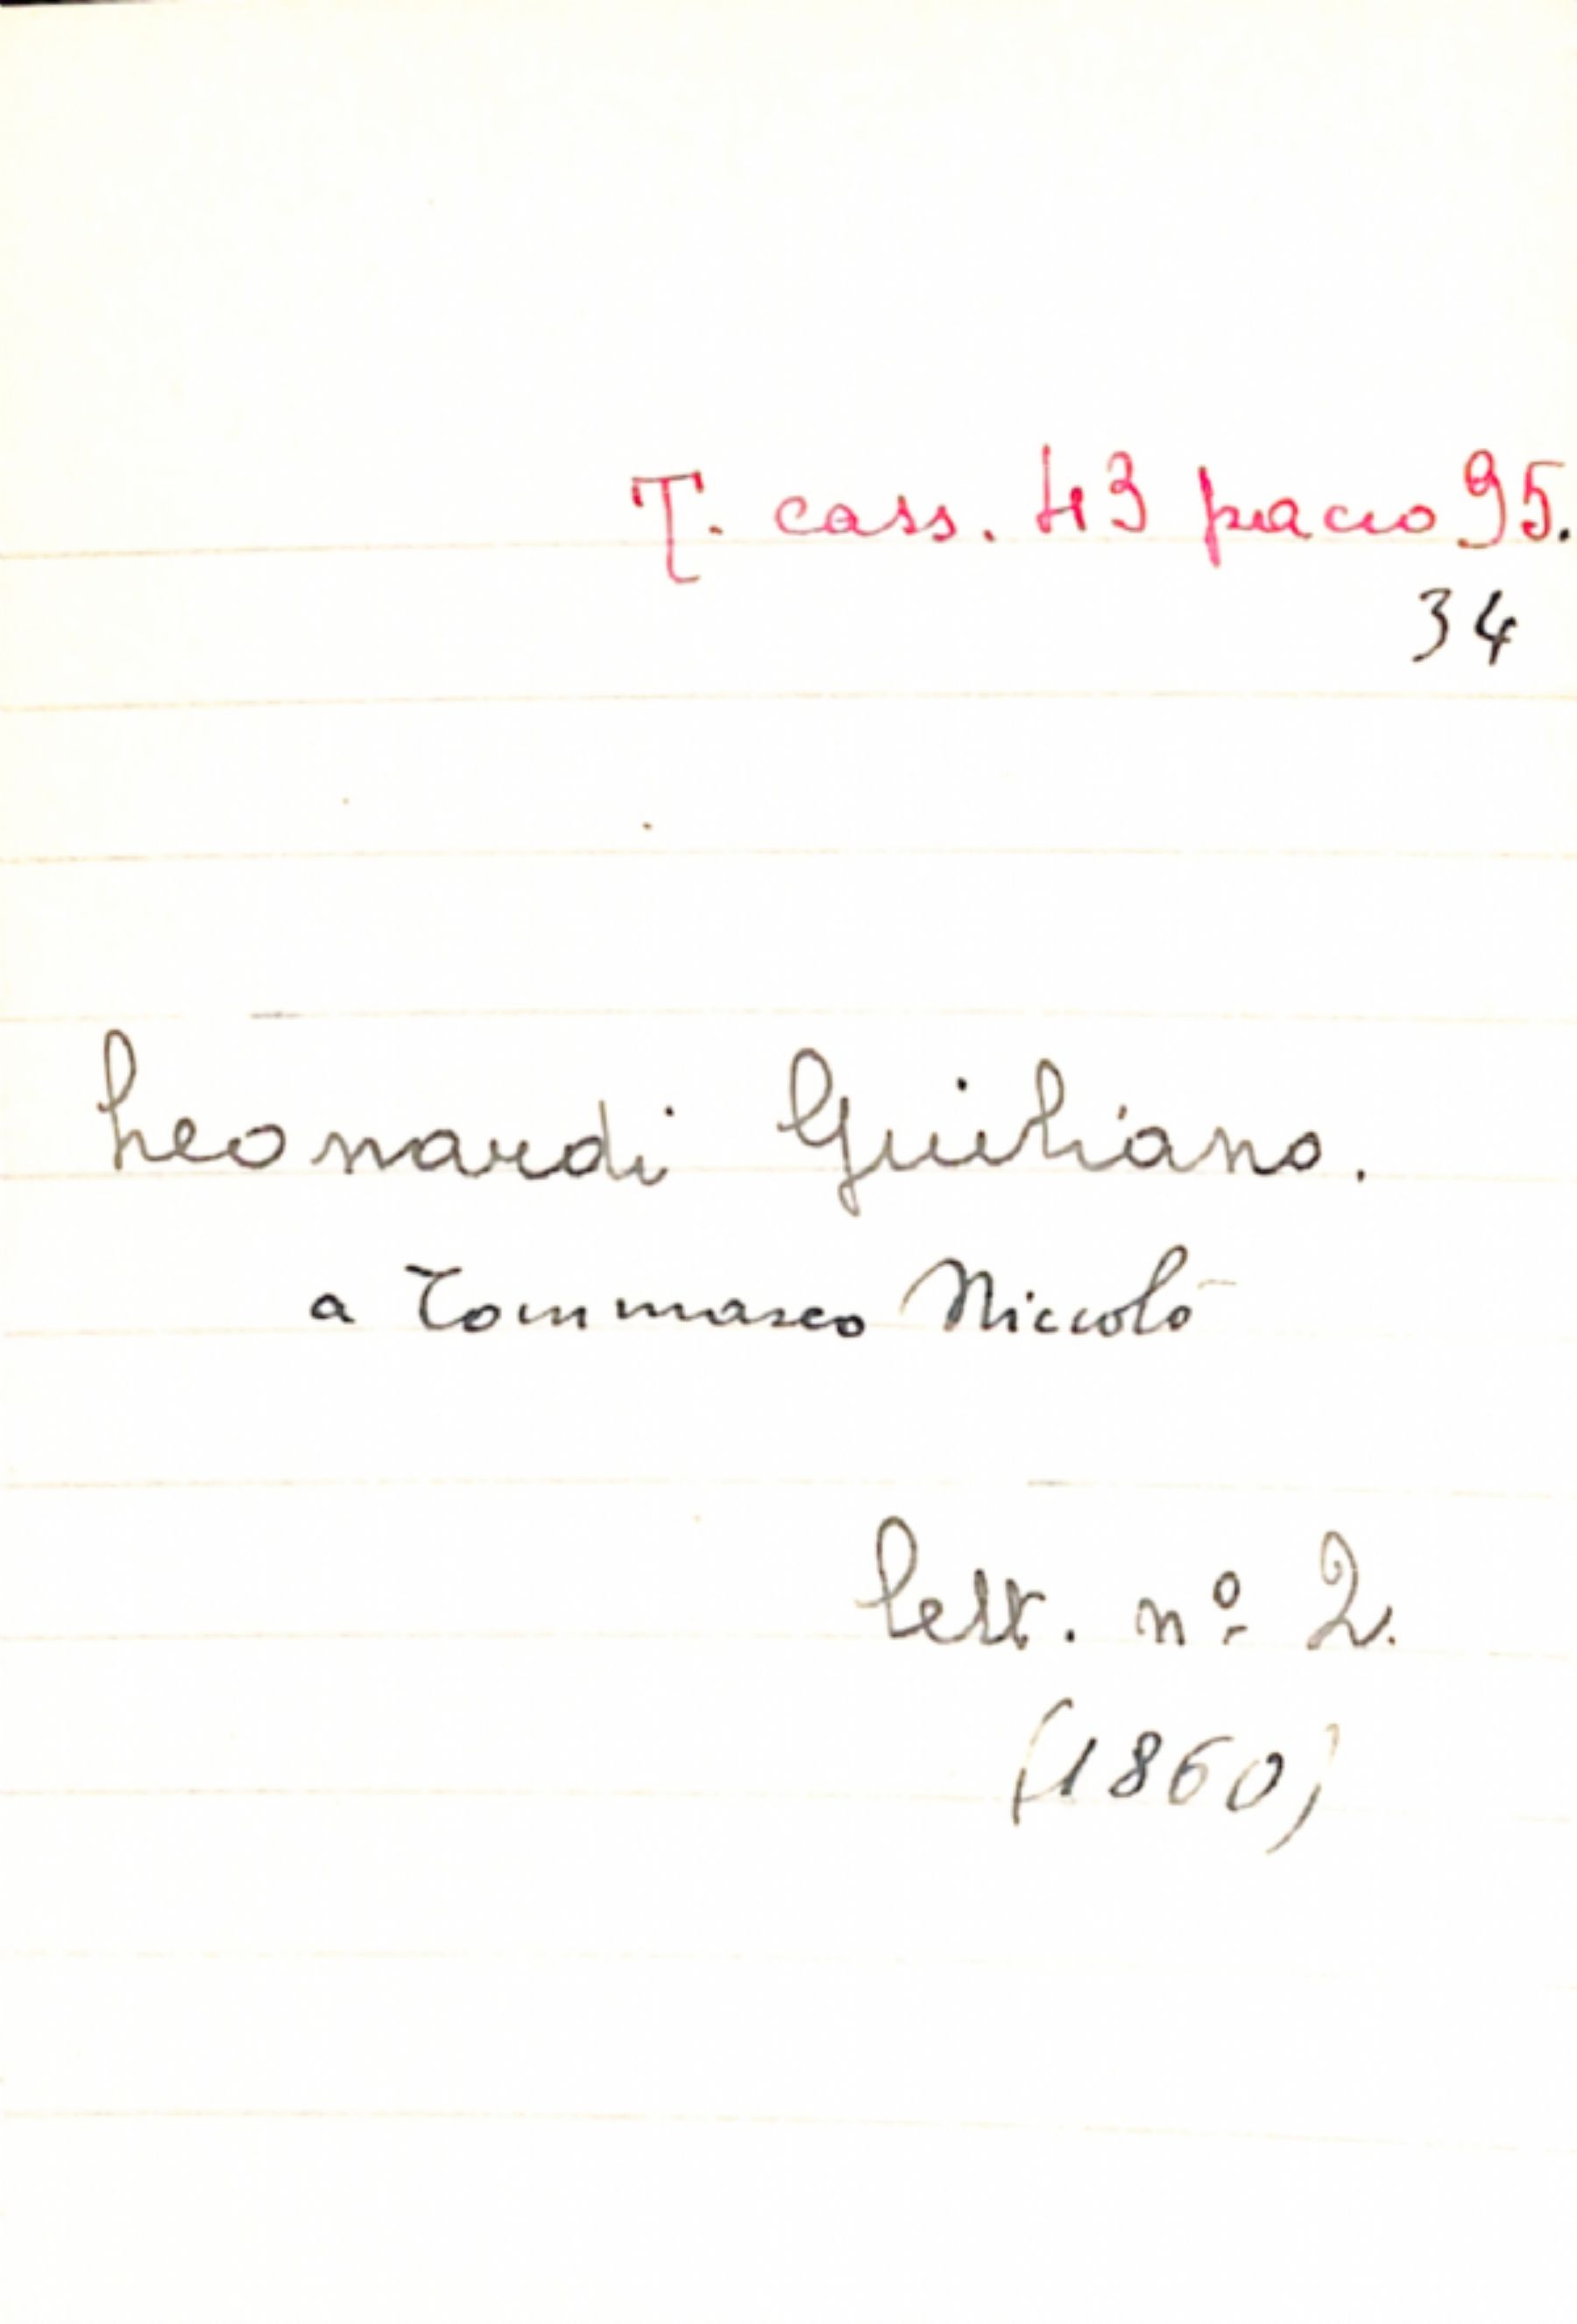 T. cass. 43 pacco 95.
34
Leonardi Giuliano.
a Tommaseo Niccolò
Lett. n° 2.
(1860)